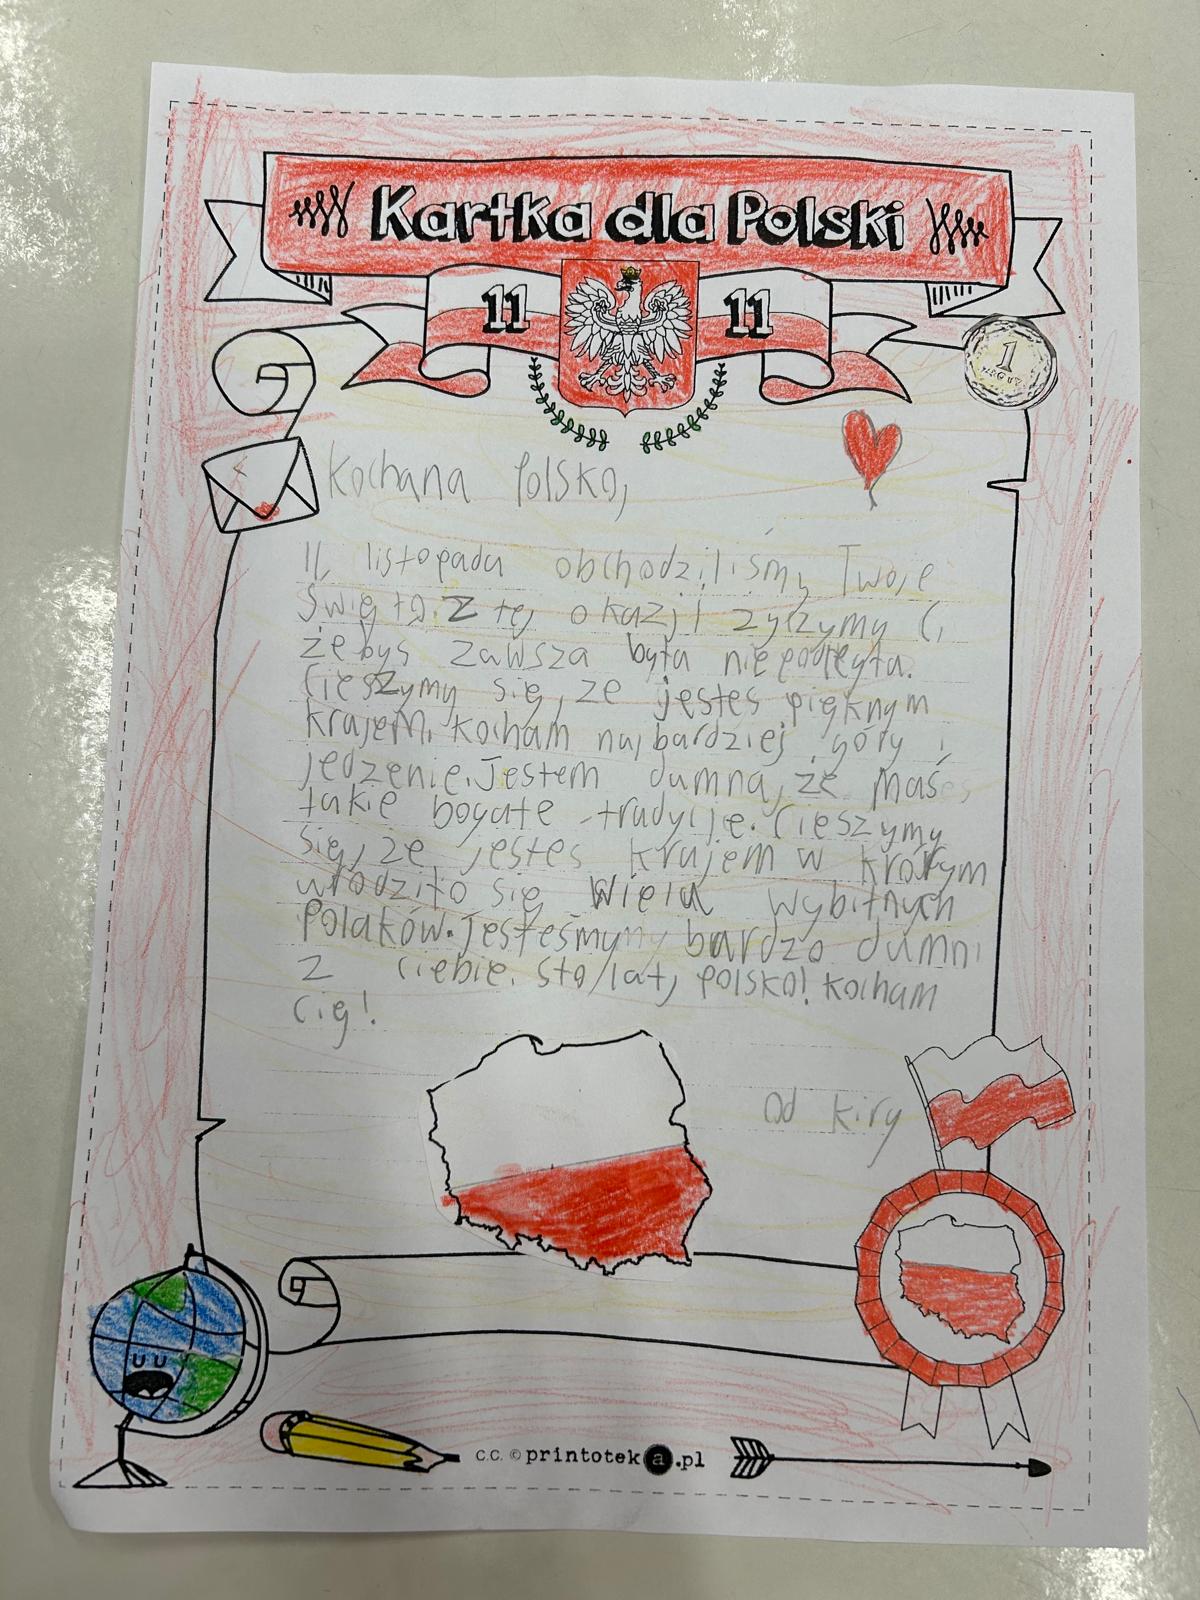 Kartka dla Polski
11 11
1
Kochana Polsko,
11, listopada obchodziliśmy Twoje
święto. Z tej okazji zyczymy Ci,
żebyś zawsza była niepodległa.
Cieszymy się, ze jestes pięknym
krajem. kocham najbardziej góry i
jedzenie. Jestem dumna, że masz
takie bogate tradycje. Cieszymy
się, ze jestes krajem w krórym
urodziło się wielu wybitnych
Polaków. Jesteśmy bardzo dumni
z ciebie. Sto lat, polsko! kocham
Cię!
Od kiry
C.C. © printoteka.pl